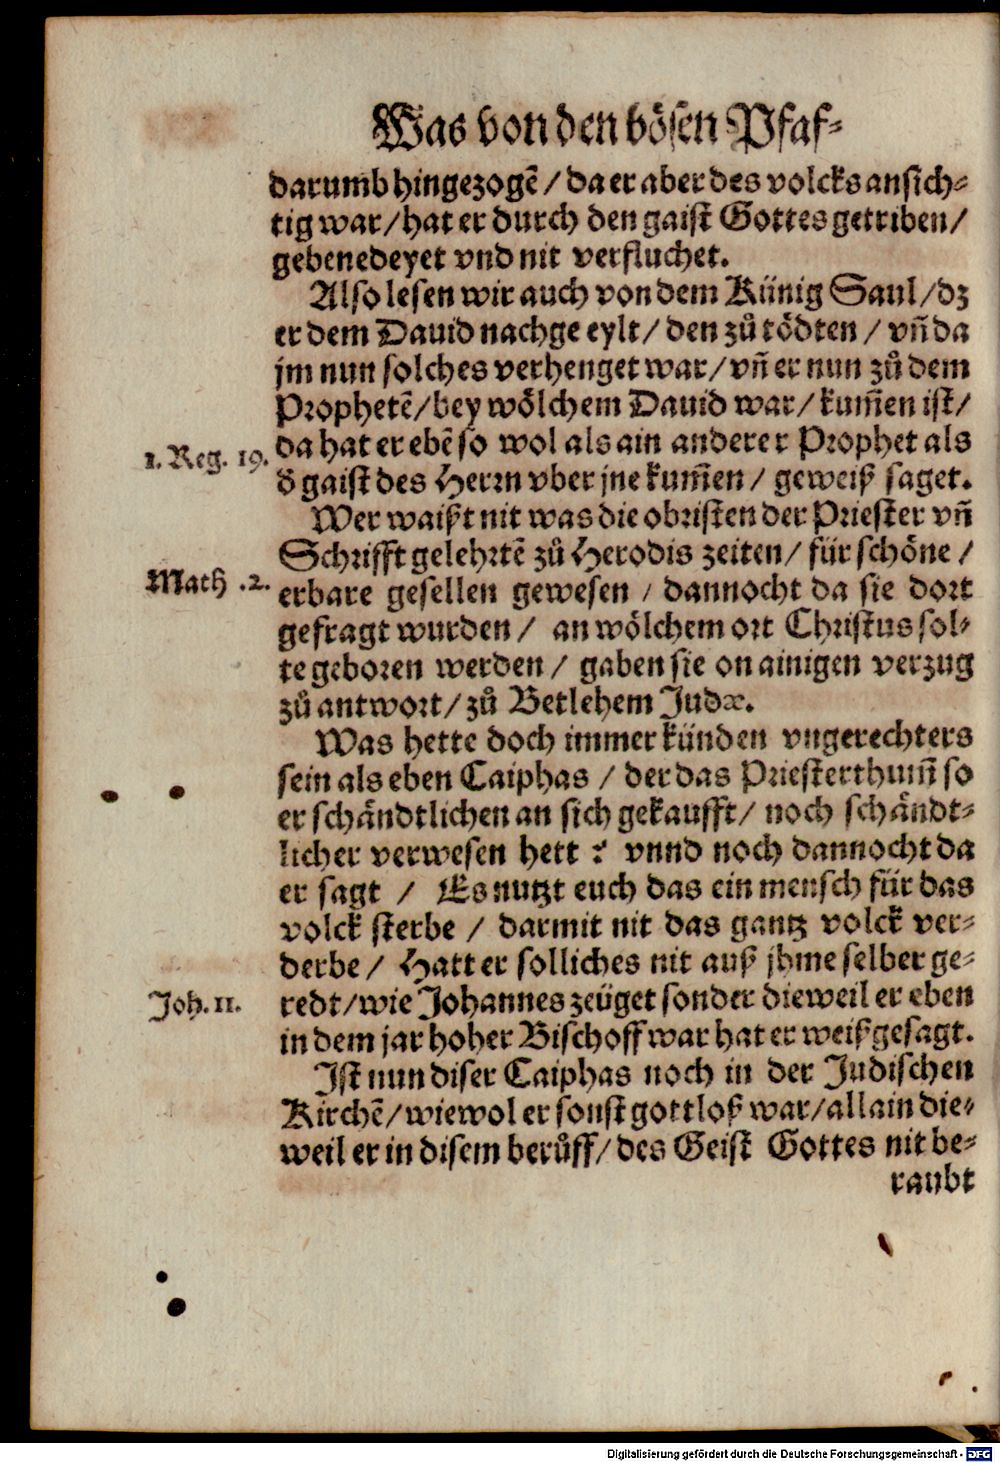 Was von den bösen Pfaf-
darumb hingezogē / da er aber des volcks ansich-
tig war / hat er durch den gaist Gottes getriben /
gebenedeyet vnd nit verfluchet.
Also lesen wir auch von dem Künig Saul / dz
er dem Dauid nachge eylt / den zů tödten / vñ da
jm nun solches verhenget war / vñ er nun zů dem
Prophetē / bey wölchem Dauid war / kum̃en ist /
da hat er ebē so wol als ain anderer Prophet als
1. Reg. 19.
d̕ gaist des Herrn vber jne kum̃en / geweiß saget.
Wer waißt nit was die obristen der Priester vñ
Schrifft gelehrtē zů Herodis zeiten / für schöne /
Math .2.
erbare gesellen gewesen / dannocht da sie dort
gefragt wurden / an wölchem ort Christus sol-
te geboren werden / gaben sie on ainigen verzug
zů antwort / zů Betlehem Judæ.
Was hette doch immer künden vngerechters
sein als eben Caiphas / der das Priesterthum̃ so
er schändtlichen an sich gekaufft / noch schändt-
licher verwesen hett ? vnnd noch dannocht da
er sagt / Es nutzt euch das ein mensch für das
volck sterbe / darmit nit das gantz volck ver-
derbe / Hatt er solliches nit auß jhme selber ge-
Joh. 11.
redt / wie Johannes zeüget sonder dieweil er eben
in dem jar hoher Bischoff war hat er weißgesagt.
Ist nun diser Caiphas noch in der Judischen
Kirchē / wiewol er sonst gottloß war / allain die-
weil er in disem berůff / des Geist Gottes nit be-
raubt
Digitalisierung gefördert durch die Deutsche Forschungsgemeinschaft - DFG